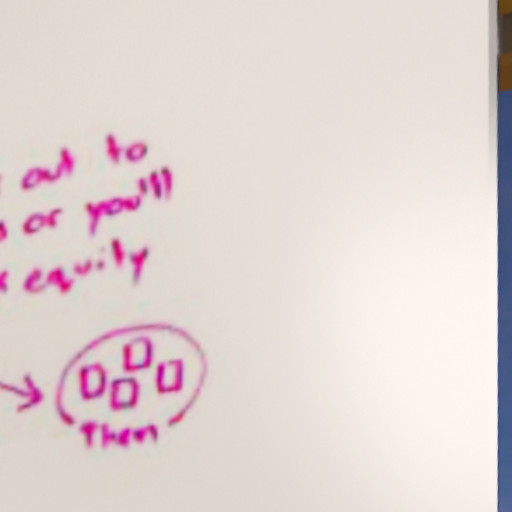 out to
or you'll
equity
Them